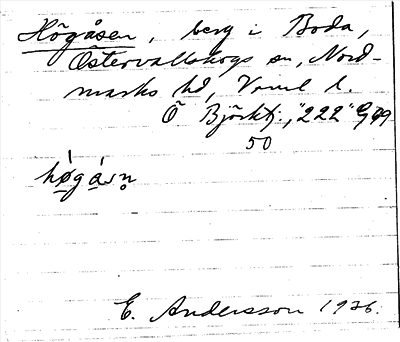 Högåsen, berg i Boda,
Östervallskogs sn, Nord-
marks hd, Vrml l.
Ö Björktj., "222" G 49
50
hø̀gásn̥
E. Andersson 1926.